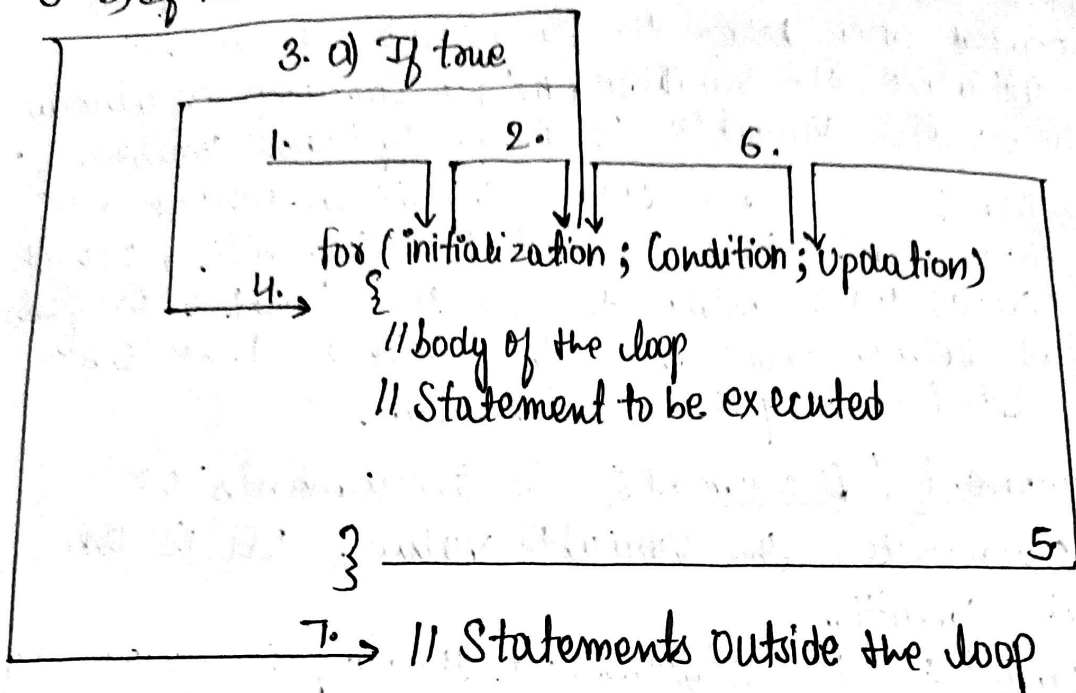 3. a) If true
1. 2. 6.
for (initialization ; Condition ; Updation)
4. {
// body of the loop
// Statement to be executed
} 5.
7. // Statements outside the loop